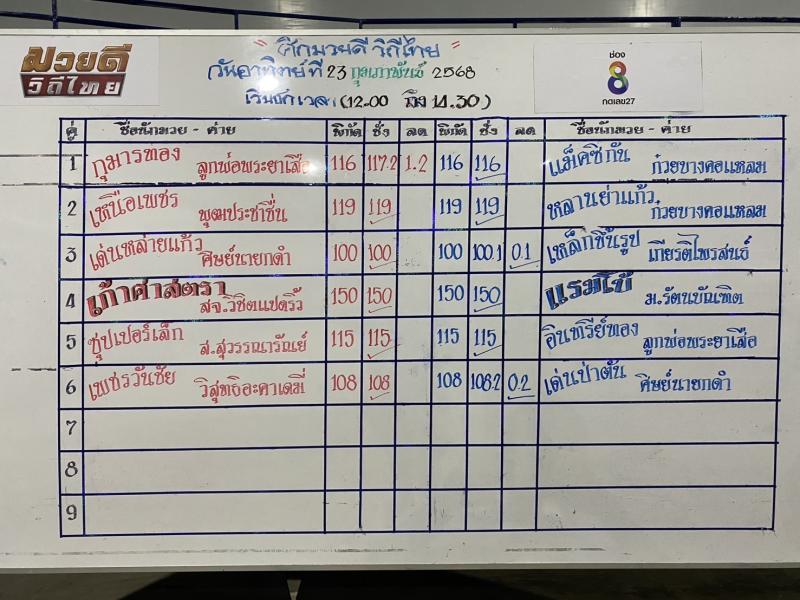 มวยดี
วิถีไทย
" ศึกมวยดี วิถีไทย "
วันอาทิตย์ที่ 23 กุมภาพันธ์ 2568
เริ่มชกเวลา (12.00 ถึง 14.30)
ช่อง
8
กดเลข27
คู่ ชื่อนักมวย - ค่าย พิกัด ชั่ง ลด พิกัด ชั่ง ลด ชื่อนักมวย - ค่าย
1 กุมารทอง ลูกพ่อพระยาเสือ 116 117.2 1.2 116 116 แม็คซีกัน ก๋วยบางคอแหลม
2 เหนือเพชร พุฒประชาชื่น 119 119 119 119 หลานย่าแก้ว ก๋วยบางคอแหลม
3 เด่นหล่ายแก้ว ศิษย์นายกดำ 100 100 100 100.1 0.1 เหล็กขึ้นรูป เกียรติไพรสนธ์
4 เก้าศาสตรา สจ.วิชิตแปดริ้ว 150 150 150 150 แรมโบ้ ม.รัตนบัณฑิต
5 ซุปเปอร์เล็ก ส.สุวรรณภัณย์ 115 115 115 115 อินทรีย์ทอง ลูกพ่อพระยาเสือ
6 เพชรวันชัย วิสุทธิอะคาเดมี่ 108 108 108 108.2 0.2 เด่นป่าตัน ศิษย์นายกดำ
7
8
9